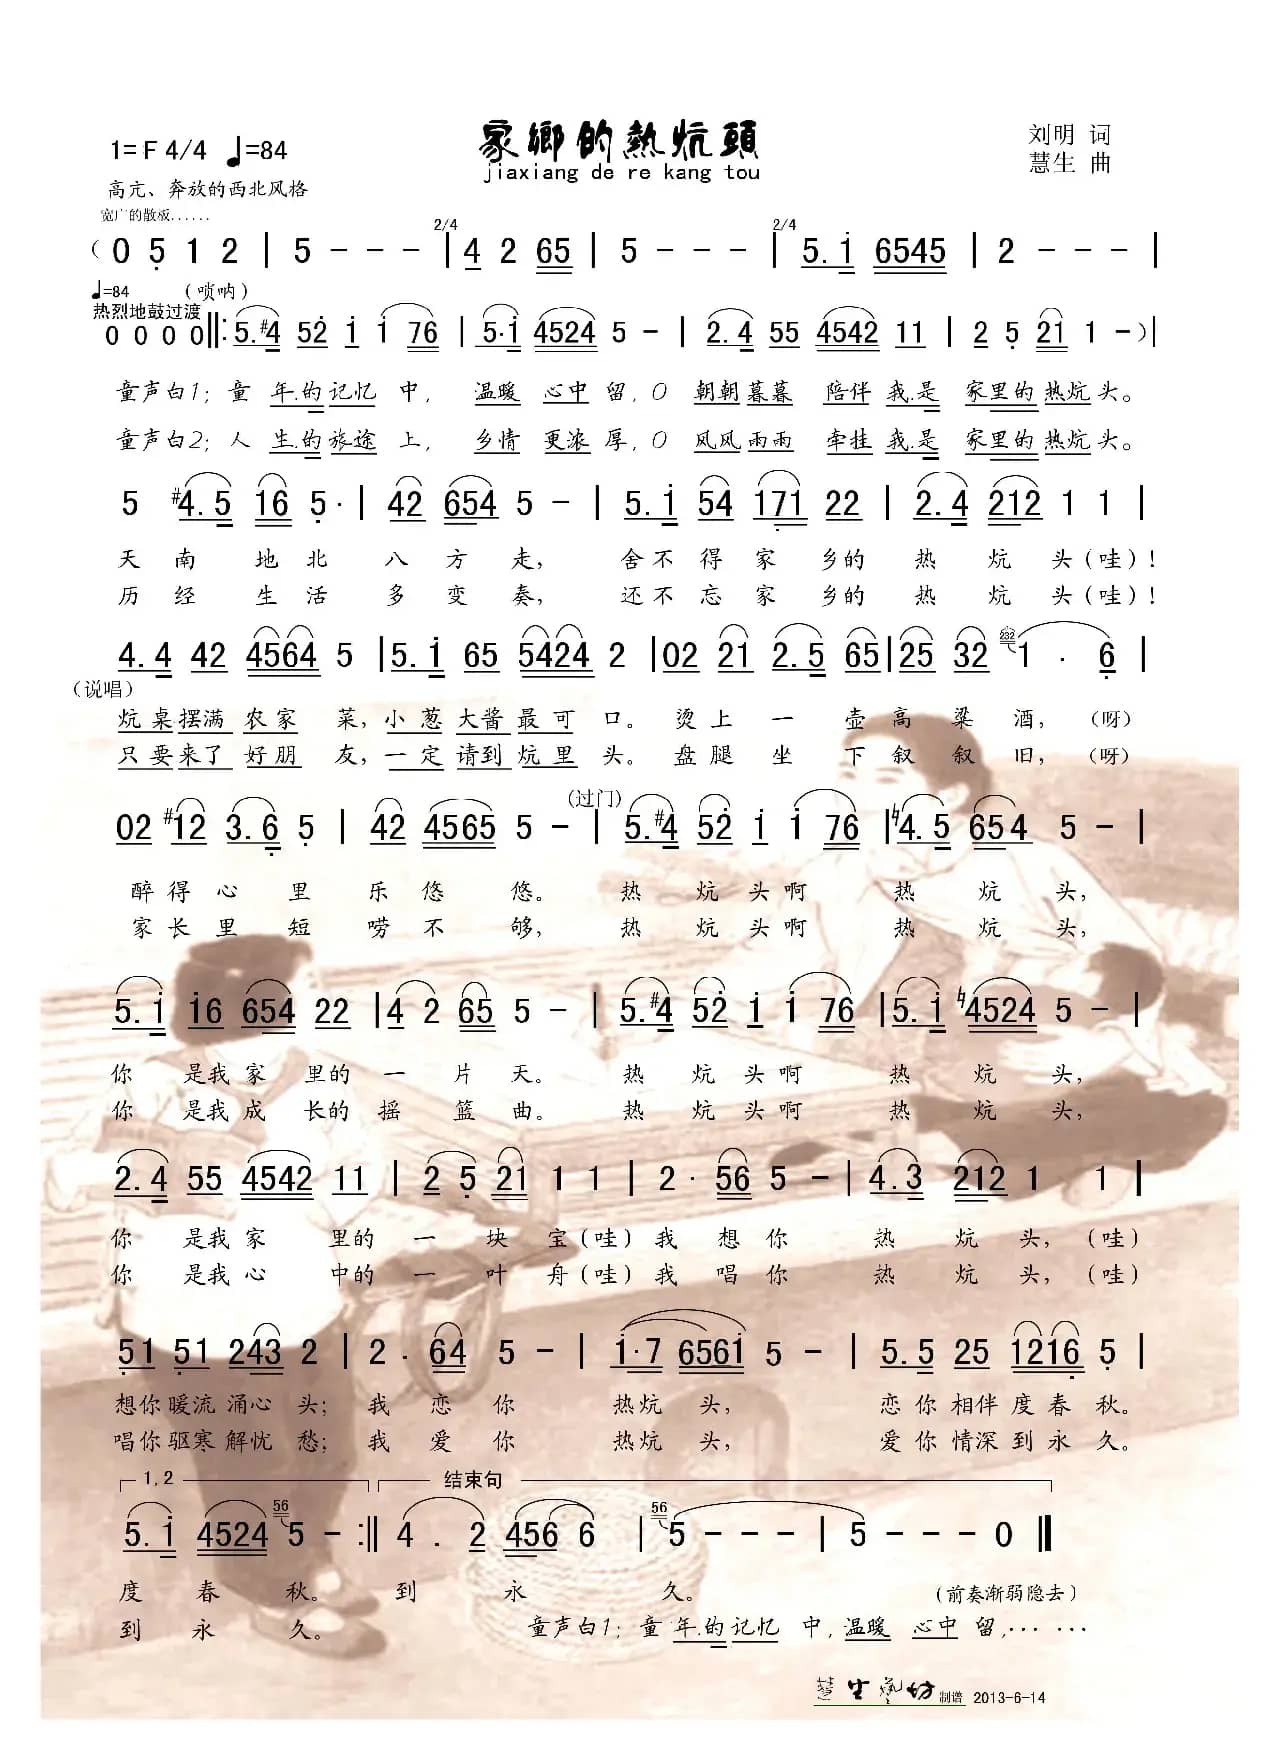 家鄉的熱炕頭
jiaxiang de re kang tou
1=F 4/4 ♩=84
刘明 词
慧生 曲
高亢、奔放的西北风格
宽广的散板......
2/4 2/4
( 0 5 1 2 | 5 - - - | 4 2 65 | 5 - - - | 5.i 6545 | 2 - - - |
♩=84 (唢呐)
热烈地鼓过渡
0 0 0 0 ‖: 5.#4 52 i i 76 | 5.i 4524 5 - | 2.4 55 4542 11 | 2 5 21 1 - )|
童声白1；童年.的记忆 中，温暖 心中留，0 朝朝暮暮 陪伴我.是 家里的热炕头。
童声白2；人生.的旅途 上，乡情 更浓厚，0 风风雨雨 牵挂我.是 家里的热炕头。
5 #4.5 i6 5. | 42 654 5 - | 5.i 54 171 22 | 2.4 212 1 1 |
天 南 地 北 八 方 走， 舍 不 得 家 乡 的 热 炕 头(哇)！
历 经 生 活 多 变 奏， 还 不 忘 家 乡 的 热 炕 头(哇)！
4.4 42 4564 5 | 5.i 65 5424 2 | 02 21 2.5 65 | 25 32 1 . 6 |
(说唱)
炕桌摆满 农家 菜，小葱大酱最可 口。烫 上 一 壶 高 粱 酒，(呀)
只要来了 好朋 友，一定请到炕里 头。盘 腿 坐 下 叙 叙 旧，(呀)
(过门)
02 #12 3.6 5 | 42 4565 5 - | 5.#4 52 i i 76 | ♮4.5 654 5 - |
醉 得 心 里 乐 悠 悠。 热 炕 头 啊 热 炕 头，
家 长 里 短 唠 不 够， 热 炕 头 啊 热 炕 头，
5.i i6 654 22 | 4 2 65 5 - | 5.#4 52 i i 76 | 5.i ♮4524 5 - |
你 是我 家 里的 一 片 天。 热 炕 头啊 热 炕 头，
你 是我 成 长的 摇 篮 曲。 热 炕 头啊 热 炕 头，
2.4 55 4542 11 | 2 5 21 1 1 | 2. 56 5 5 | 4.3 212 1 1 |
你 是我 家 里的 一 块 宝(哇)我 想 你 热 炕 头，(哇)
你 是我 心 中的 一 叶 舟(哇)我 唱 你 热 炕 头，(哇)
51 51 243 2 | 2. 64 5 - | i.7 656i 5 - | 5.5 25 1216 5 |
想你暖流 涌心 头；我 恋 你 热炕 头， 恋 你 相伴 度春 秋。
唱你驱寒 解忧 愁；我 爱 你 热炕 头， 爱 你 情深 到永 久。
1，2 结束句
56 56
5.i 4524 5 - :‖ 4 . 2 456 6 | 5 - - - | 5 - - 0 ‖
度 春 秋。 到 永 久。 (前奏渐弱隐去)
到 永 久。 童声白1；童年.的记忆 中，温暖 心中留，... ...
慧生藝坊 制谱 2013-6-14